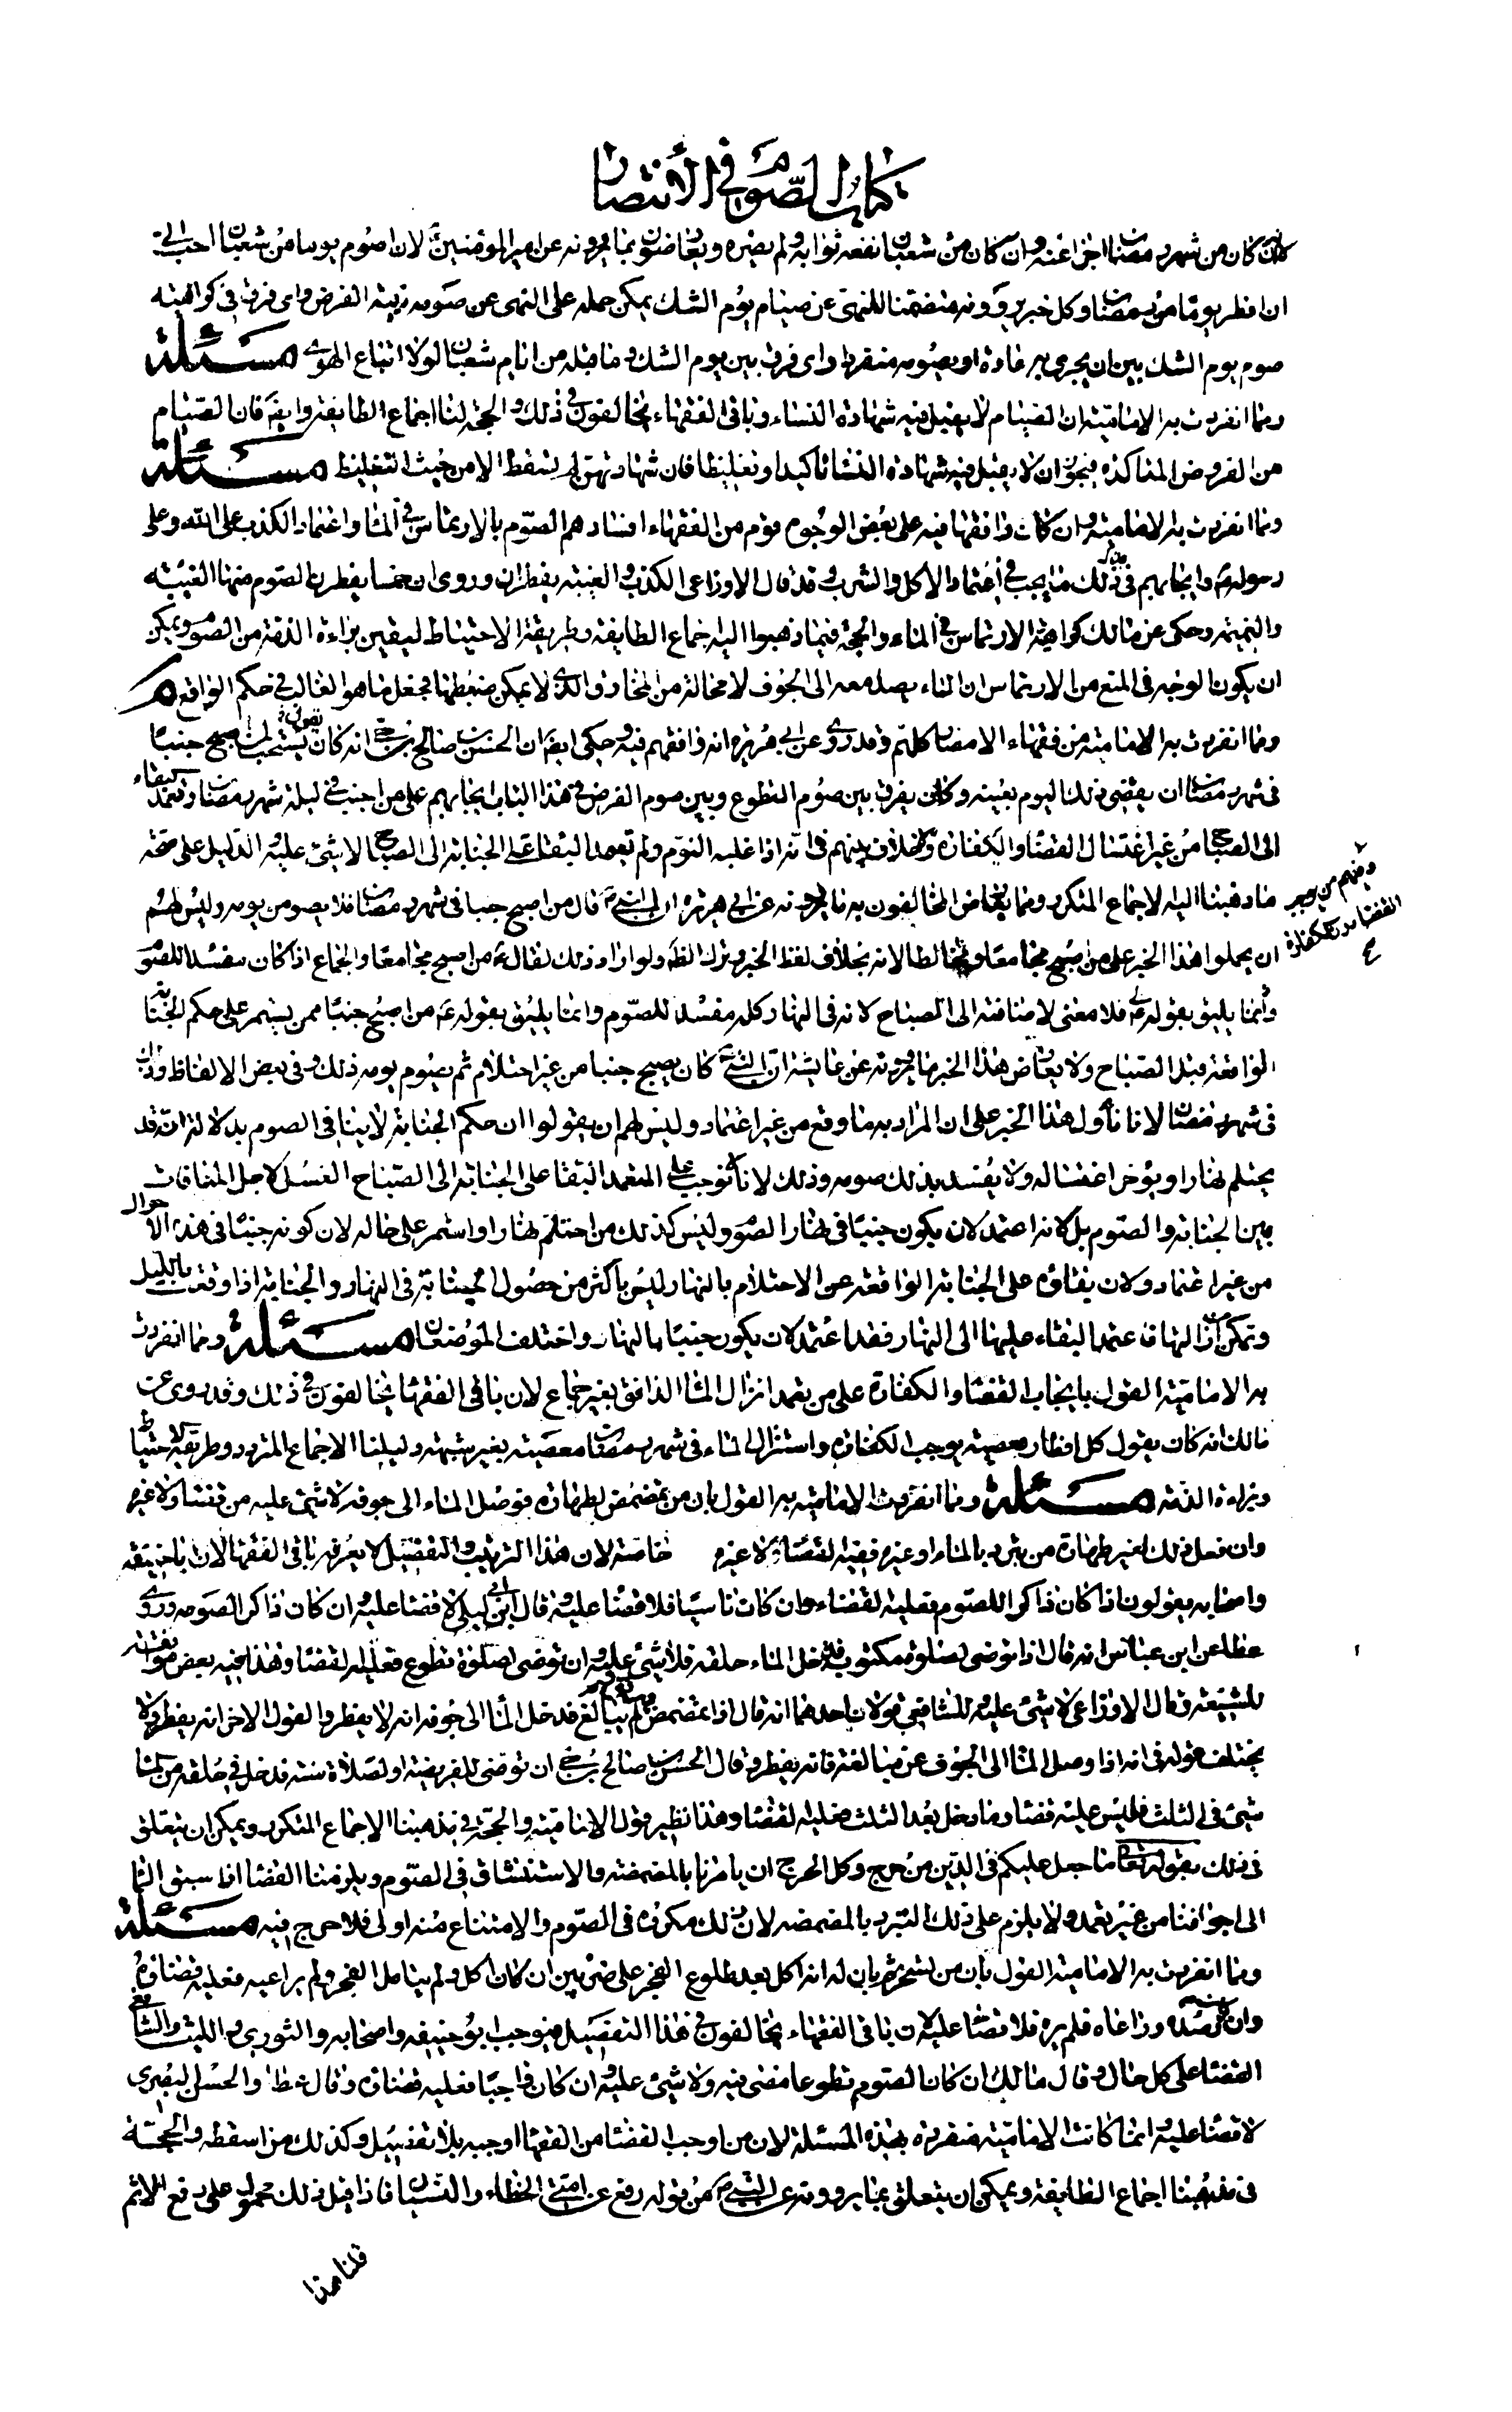 كتاب الصوم في الانتصار
لانه كان من شهر رمضان اجزا عنه وان كان من شعبان نفعه ثوابه ولم يضره ويعارضون بما يروونه عن امير المؤمنين ع لان اصوم يوما من شعبان احب الي
ان افطر يوما من رمضان وكل خبر يروونه متضمنا للنهي عن صيام يوم الشك يمكن حمله على النهي عن صومه بنية الفرض واي فرق في كراهية
صوم يوم الشك بين ان يجري به عادة او يصومه منفردا واي فرق بين يوم الشك وما قبله من ايام شعبان لولا اتباع الهوى مسئلة
ومما انفردت به الامامية ان الصيام لا يقبل فيه شهادة النساء وباقي الفقهاء يخالفون في ذلك والحجة لنا اجماع الطايفة وايضا فان الصيام
من الفروض المتاكدة فيجوز ان لا يقبل فيه شهادة النساء تاكيدا وتغليظا فان شهادتهن لم يسقط الا من حيث التغليظ مسئلة
ومما انفردت به الامامية وان كان وافقها فيه على بعض الوجوه قوم من الفقهاء افسادهم الصوم بالارتماس في الماء واعتماد الكذب على الله وعلى
رسوله ص وايجابهم في ذلك ما يجب في اعتماد الاكل والشرب وقد قال الاوزاعي الكذب والغيبة يفطران وروى ان خمسا يفطرن الصوم منها الغيبة
والنميمة وحكى عن مالك كراهية الارتماس في الماء والحجة فيما ذهبوا اليه اجماع الطايفة وطريقة الاحتياط ليقين براءة الذمة من الصوم ويمكن
ان يكون الوجه في المنع من الارتماس ان الماء يصل معه الى الجوف لا محالة من المخارق التي لا يمكن ضبطها فجعل ما هو الغالب في حكم الواقع م
ومما انفردت به الامامية من فقهاء الامصار كلهم وقد روى عن ابي هريرة انه وافقهم فيه وحكى ايضا ان الحسن بن صالح بن حي انه كان يقول يستحب لمن اصبح جنبا
في شهر رمضان ان يقضي ذلك اليوم بعينه وكان يفرق بين صوم التطوع وبين صوم الفرض في هذا الباب ايجابهم على من اجنب في ليلة شهر رمضان وتعمد البقاء
الى الصباح من غير اغتسال القضاء والكفارة ولا خلاف بينهم في انه اذا غلبه النوم ولم تعمد البقاء على الجنابة الى الصباح لا شيء عليه الدليل على صحة
ومنهم من يوجب
القضاء دون الكفارة
ع
ما ذهبنا اليه الاجماع المتكرر ومما يعارض المخالفون به ما يروونه عن ابي هريرة ان النبي ص قال من اصبح جنبا في شهر رمضان فلا يصومن يومه وليس لهم
ان يحملوا هذا الخبر على من اصبح مجامعا ومخالطا لانه بخلاف لفظ الخبر وترك الظاهر ولو اراد ذلك لقال ع من اصبح مجامعا والجماع اذا كان مفسدا للصوم
وانما يليق بقوله ع فلا معنى لاضافته الى الصباح لانه في النهار كله مفسد للصوم وانما يليق بقوله ع من اصبح جنبا ممن يستمر على حكم الجنابة
الواقعة قبل الصباح ولا يعارض هذا الخبر ما يروونه عن عايشة ان النبي ص كان يصبح جنبا من غير احتلام ثم يصوم يومه ذلك وفي بعض الالفاظ وذلك
في شهر رمضان لانا نأول هذا الخبر على ان المراد به ما وقع من غير اعتماد وليس لهم ان يقولوا ان حكم الجنابة لا ينافي الصوم بدلالة انه قد
يحتلم نهارا ويؤخر اغتساله ولا يفسد بذلك صومه وذلك لانا لا نوجب على المتعمد البقاء على الجنابة الى الصباح الغسل لاجل المنافات
بين الجنابة والصوم بل لانه اعتمد لان يكون جنبا في نهار الصوم وليس كذلك من احتلم نهارا واستمر على حاله لان كونه جنبا في هذه الاحوال
من غير اعتماد ولان بقاؤه على الجنابة الواقعة عن الاحتلام بالنهار ليس باكثر من حصول الجنابة في النهار والجنابة اذا وقعت بالليل
وتمكن من ازالتها فاعتمد البقاء عليها الى النهار فقد اعتمد لان يكون جنبا بالنهار واختلف الموضعان مسئلة ومما انفردت
به الامامية القول بايجاب القضاء والكفارة على من تعمد انزال الماء الدافق بغير جماع لان باقي الفقهاء يخالفون في ذلك وقد روى عن
مالك انه كان يقول كل افطار بمعصية يوجب الكفارة واستنزال الماء في شهر رمضان معصية بغير شبهة دليلنا الاجماع المتردد وطريقة الاحتياط
وبراءة الذمة مسئلة ومما انفردت الامامية به القول بان من تمضمض لطهارة فوصل الماء الى جوفه لا شيء عليه من قضاء ولا غيره
وان فعل ذلك لغير طهارة من تبرد بالماء او غيره ففيه القضاء لا غيره خاصة لان هذا الترتيب والتفصيل لا يعرفه باقي الفقهاء لان ابا حنيفة
واصحابه يقولون اذا كان ذاكرا للصوم فعليه القضاء وان كان ناسيا فلا قضاء عليه وقال ابن ابي ليلى لا قضاء عليه ان كان ذاكرا لصومه وروى
عطا عن ابن عباس انه قال اذا توضى لصلوة مكتوبة فدخل الماء حلقه فلا شيء عليه وان توضى لصلوة تطوع فعليه القضاء وهذا فيه بعض موافقة
للشيعة وقال الاوزاعي لا شيء عليه للشافعي قولان احدهما انه قال اذا تمضمض ولم يبالغ فدخل الماء الى جوفه انه لا يفطر والقول الاخر انه يفطر ولا
يختلف قوله في انه اذا وصل الماء الى الجوف عن مبالغة فانه يفطر وقال الحسن بن صالح بن حي ان توضى للفريضة او لصلاة سنة فدخل في حلقه من الماء
شيء في الثلث فليس عليه قضاء وما دخل بعد الثلث فعليه القضاء وهذا نظير قول الامامية والحجة في مذهبنا الاجماع المتكرر ويمكن ان يتعلق
في ذلك بقوله تعالى ما جعل عليكم في الدين من حرج وكل الحرج ان يامرنا بالمضمضة والاستنشاق في الصوم ويلزمنا القضاء اذا سبق الماء
الى اجوافنا من غير تعمد ولا يلزم على ذلك التبرد بالمضمضة لان ذلك مكروه في الصوم والامتناع منه اولى فلا حرج فيه مسئلة
ومما انفردت به الامامية القول بان من تسحر ثم بان له انه اكل بعد طلوع الفجر على ضربين ان كان اكل ولم يتامل الفجر ولم يراعيه فعليه قضاؤه
وان كان رصده وراعاه فلم يره فلا قضاء عليه لان باقي الفقهاء يخالفون في هذا التفصيل فيوجب ابو حنيفة واصحابه والثوري والليث والشافعي
القضاء على كل حال وقال مالك ان كان الصوم تطوعا مضى فيه ولا شيء عليه وان كان واجبا فعليه قضاؤه وقال عطا والحسن البصري
لا قضاء عليه انما كانت الامامية منفردة بهذه المسئلة لان من اوجب القضاء من الفقهاء اوجبه بلا تفصيل وكذلك من اسقطه والحجة
في مذهبنا اجماع الطايفة ويمكن ان يتعلق بما يروونه عن النبي ص من قوله رفع عن امتي الخطاء والنسيان فاذا قيل ذلك محمول على رفع الاثم
قلنا هذا